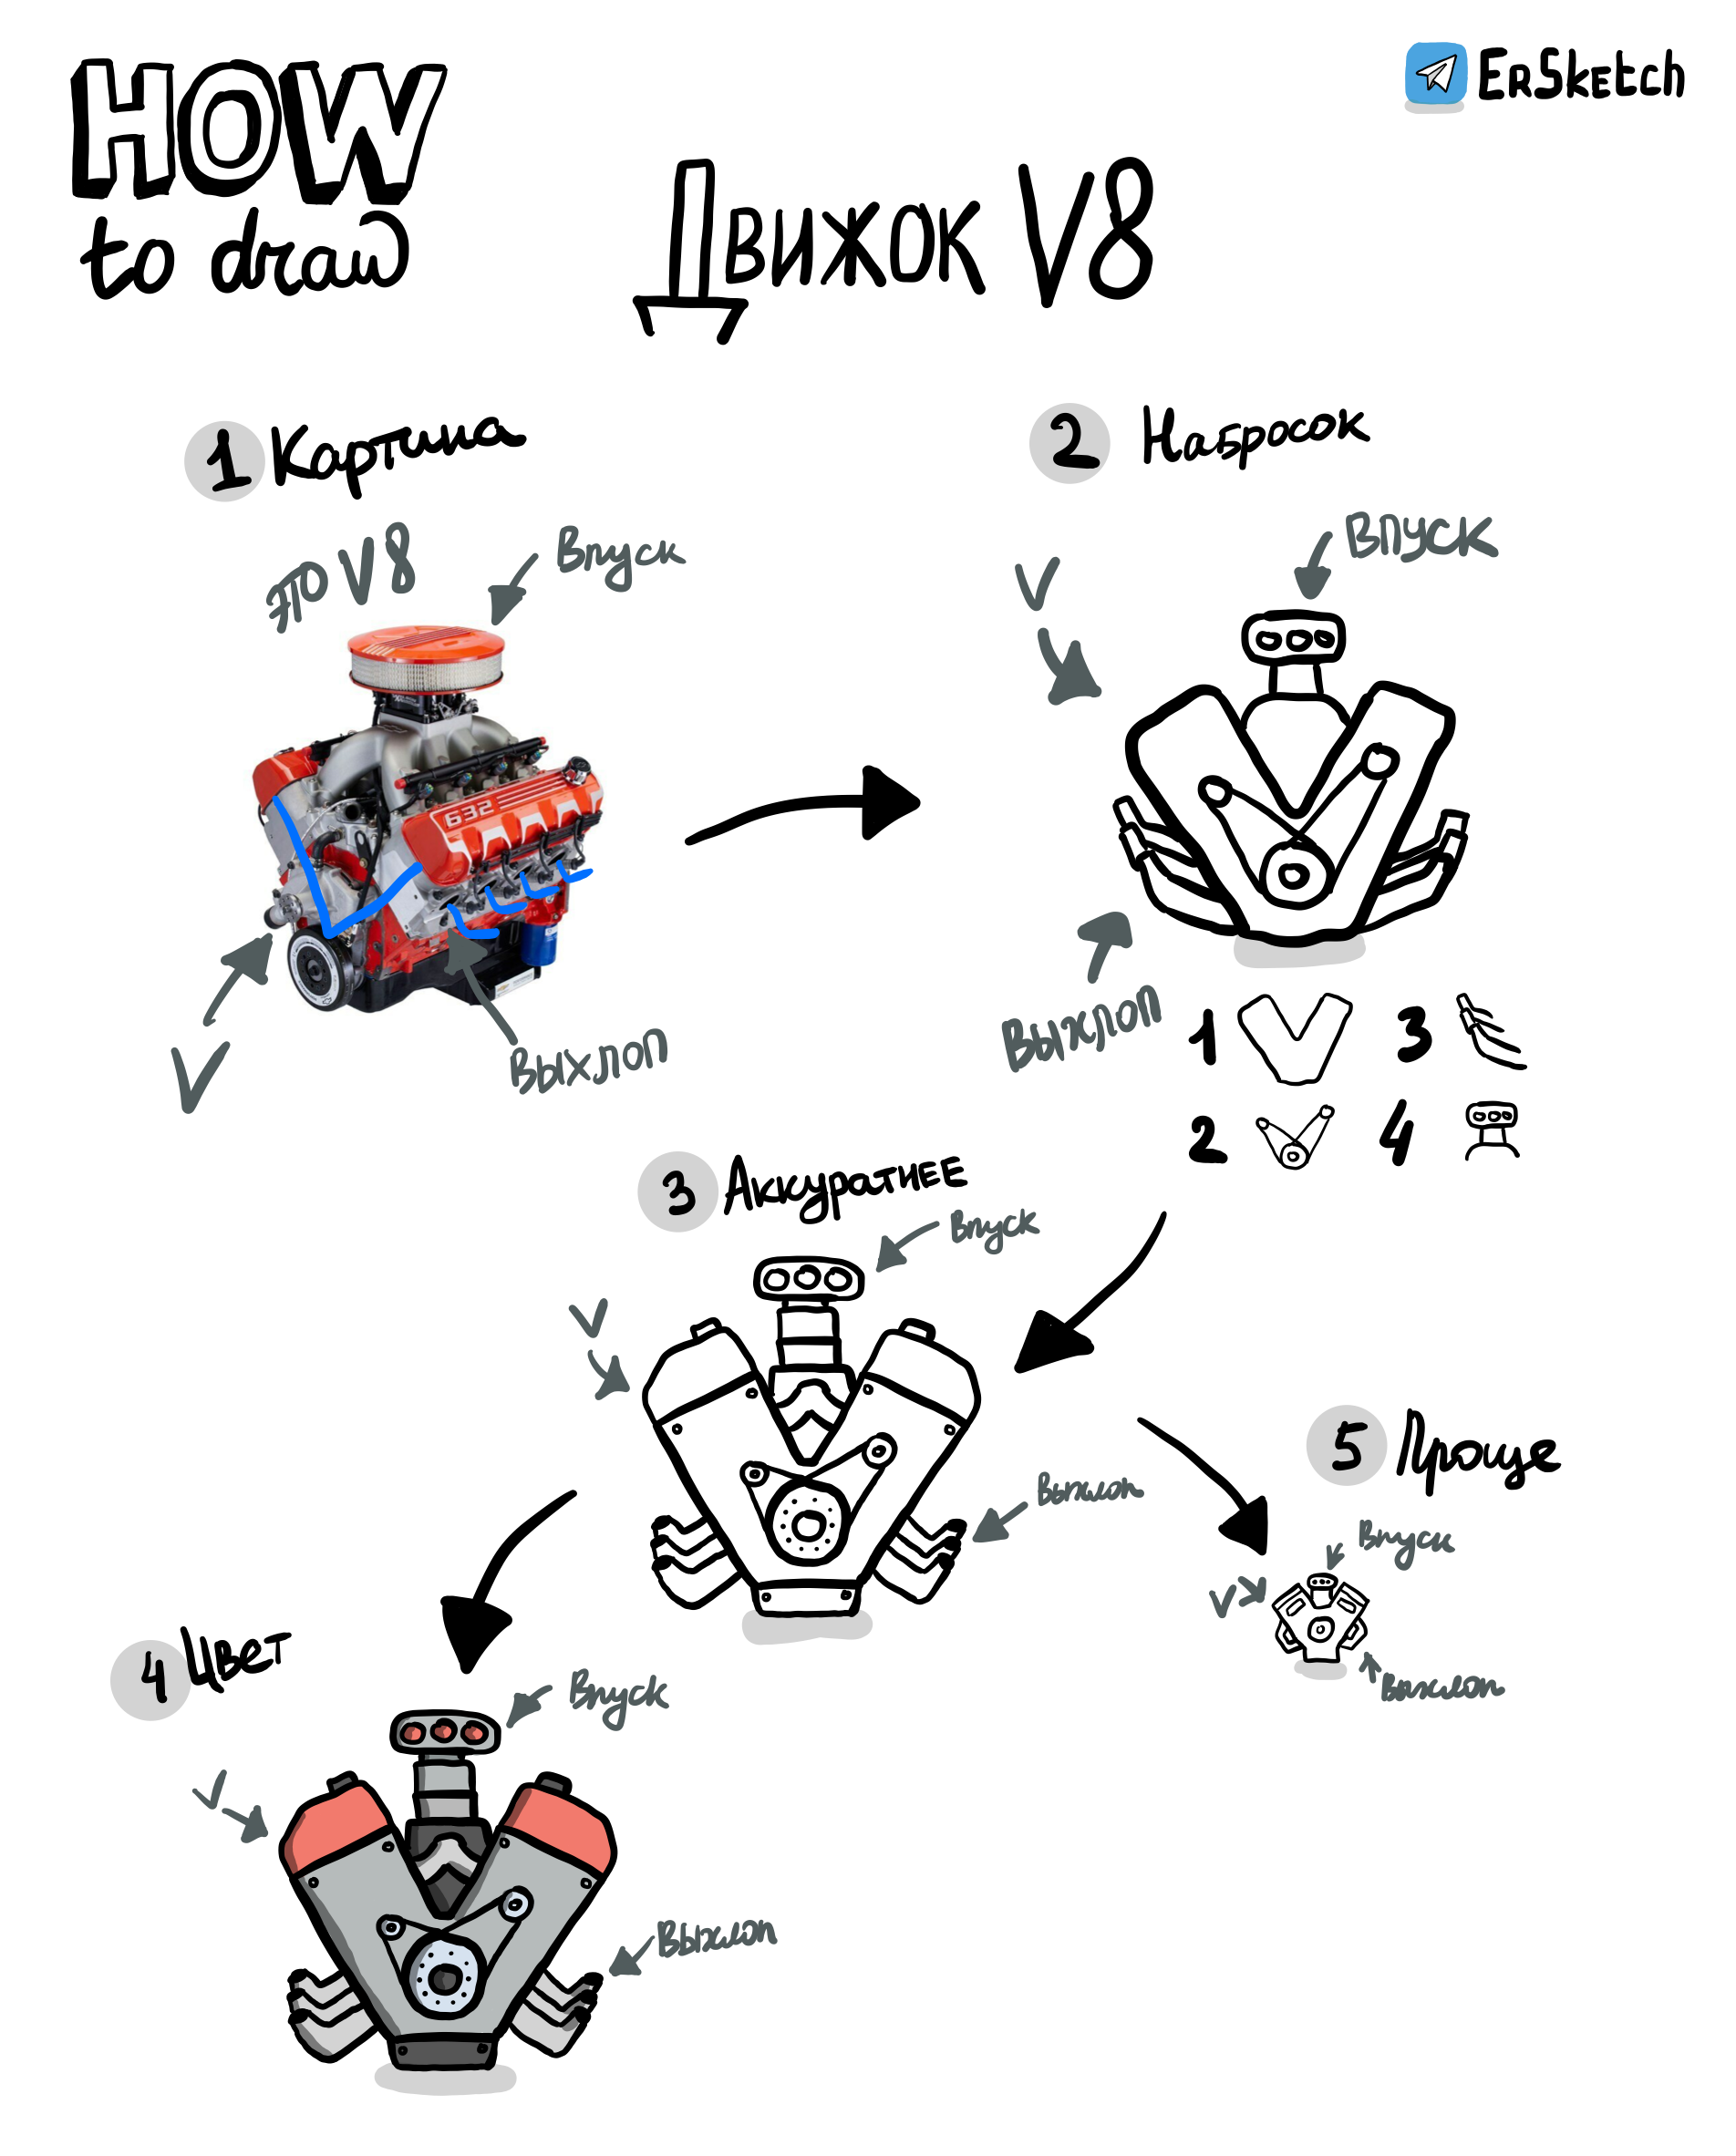 HOW
to draw
ErSketch
Движок V8
1 Картина
это V8
Впуск
632
V
Выхлоп
2 Набросок
V
Впуск
Выхлоп
1
3
2
4
3 Аккуратнее
Впуск
V
Выхлоп
5 Проще
Впуск
V
Выхлоп
4 Цвет
Впуск
V
Выхлоп